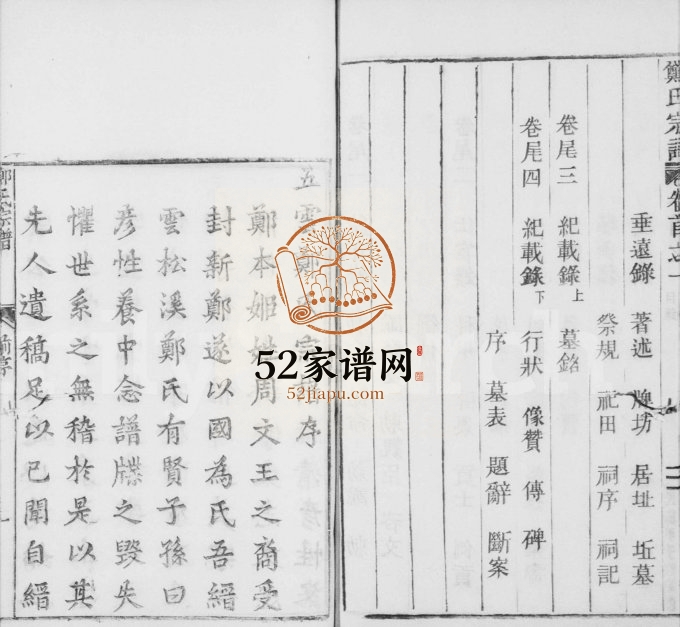 鄭氏宗譜
卷首之一
垂遠錄 著述 牌坊 居址 坵墓
祭規 祀田 祠序 祠記
卷尾三 紀載錄上 墓銘
卷尾四 紀載錄下 行狀 像贊 傳 碑
序 墓表 題辭 斷案
五雲鄭氏宗譜序
鄭本姬姓周文王之裔受
封新鄭遂以國為氏吾縉
雲松溪鄭氏有賢子孫曰
彥性養中念譜牒之毀失
懼世系之無稽於是以其
先人遺稿足以已聞自縉
鄭氏宗譜
52家谱网
52jiapu.com